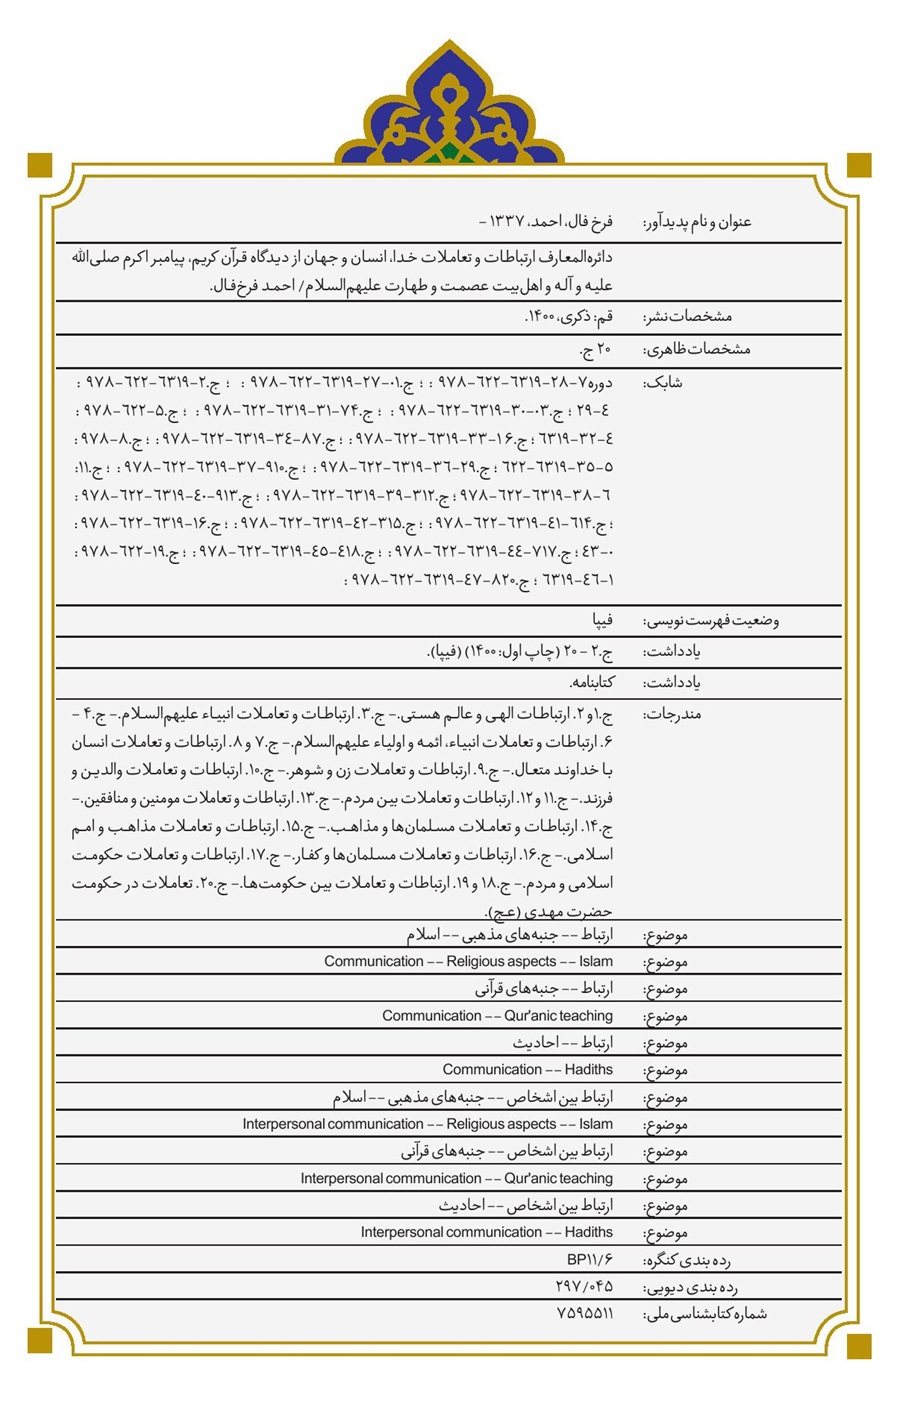 عنوان و نام پدیدآور: فرخ فال، احمد، ۱۳۳۷ -
دائره‌المعارف ارتباطات و تعاملات خدا، انسان و جهان از دیدگاه قرآن کریم، پیامبر اکرم صلی‌الله
علیه و آله و اهل‌بیت عصمت و طهارت علیهم‌السلام/ احمد فرخ‌فال.
مشخصات نشر: قم: ذکری، ۱۴۰۰.
مشخصات ظاهری: ۲۰ ج.
شابک: دوره۷-۲۸-۶۳۱۹-۶۲۲-۹۷۸ : ؛ ج.۰۱-۲۷-۶۳۱۹-۶۲۲-۹۷۸ : ؛ ج.۲-۶۳۱۹-۶۲۲-۹۷۸ :
۴-۲۹ ؛ ج.۰۳-۳۰-۶۳۱۹-۶۲۲-۹۷۸ : ؛ ج.۷۴-۳۱-۶۳۱۹-۶۲۲-۹۷۸ : ؛ ج.۵-۶۲۲-۹۷۸ :
۴-۳۲-۶۳۱۹ ؛ ج.۱۶-۳۳-۶۳۱۹-۶۲۲-۹۷۸ : ؛ ج.۸۷-۳۴-۶۳۱۹-۶۲۲-۹۷۸ : ؛ ج.۸-۹۷۸ :
۵-۳۵-۶۳۱۹-۶۲۲ ؛ ج.۲۹-۳۶-۶۳۱۹-۶۲۲-۹۷۸ : ؛ ج.۹۱۰-۳۷-۶۳۱۹-۶۲۲-۹۷۸ : ؛ ج.۱۱:
۶-۳۸-۶۳۱۹-۶۲۲-۹۷۸ ؛ ج.۳۱۲-۳۹-۶۳۱۹-۶۲۲-۹۷۸ : ؛ ج.۹۱۳-۴۰-۶۳۱۹-۶۲۲-۹۷۸ :
؛ ج.۶۱۴-۴۱-۶۳۱۹-۶۲۲-۹۷۸ : ؛ ج.۳۱۵-۴۲-۶۳۱۹-۶۲۲-۹۷۸ : ؛ ج.۱۶-۶۳۱۹-۶۲۲-۹۷۸ :
۰-۴۳ ؛ ج.۷۱۷-۴۴-۶۳۱۹-۶۲۲-۹۷۸ : ؛ ج.۴۱۸-۴۵-۶۳۱۹-۶۲۲-۹۷۸ : ؛ ج.۱۹-۶۲۲-۹۷۸ :
۱-۴۶-۶۳۱۹ ؛ ج.۸۲۰-۴۷-۶۳۱۹-۶۲۲-۹۷۸ :
وضعیت فهرست نویسی: فیپا
یادداشت: ج.۲ - ۲۰ (چاپ اول: ۱۴۰۰) (فیپا).
یادداشت: کتابنامه.
مندرجات: ج.۱و ۲. ارتباطات الهی و عالم هستی.- ج.۳. ارتباطات و تعاملات انبیاء علیهم‌السلام.- ج.۴ -
۶. ارتباطات و تعاملات انبیاء، ائمه و اولیاء علیهم‌السلام.- ج.۷ و ۸. ارتباطات و تعاملات انسان
با خداوند متعال.- ج.۹. ارتباطات و تعاملات زن و شوهر.- ج.۱۰. ارتباطات و تعاملات والدین و
فرزند.- ج.۱۱ و ۱۲. ارتباطات و تعاملات بین مردم.- ج.۱۳. ارتباطات و تعاملات مومنین و منافقین.-
ج.۱۴. ارتباطات و تعاملات مسلمان‌ها و مذاهب.- ج.۱۵. ارتباطات و تعاملات مذاهب و امم
اسلامی.- ج.۱۶. ارتباطات و تعاملات مسلمان‌ها و کفار.- ج.۱۷. ارتباطات و تعاملات حکومت
اسلامی و مردم.- ج.۱۸ و ۱۹. ارتباطات و تعاملات بین حکومت‌ها.- ج.۲۰. تعاملات در حکومت
حضرت مهدی (عج).
موضوع: ارتباط -- جنبه‌های مذهبی -- اسلام
موضوع: Communication -- Religious aspects -- Islam
موضوع: ارتباط -- جنبه‌های قرآنی
موضوع: Communication -- Qur'anic teaching
موضوع: ارتباط -- احادیث
موضوع: Communication -- Hadiths
موضوع: ارتباط بین اشخاص -- جنبه‌های مذهبی -- اسلام
موضوع: Interpersonal communication -- Religious aspects -- Islam
موضوع: ارتباط بین اشخاص -- جنبه‌های قرآنی
موضوع: Interpersonal communication -- Qur'anic teaching
موضوع: ارتباط بین اشخاص -- احادیث
موضوع: Interpersonal communication -- Hadiths
رده بندی کنگره: BP۱۱/۶
رده بندی دیویی: ۲۹۷/۰۴۵
شماره کتابشناسی ملی: ۷۵۹۵۵۱۱